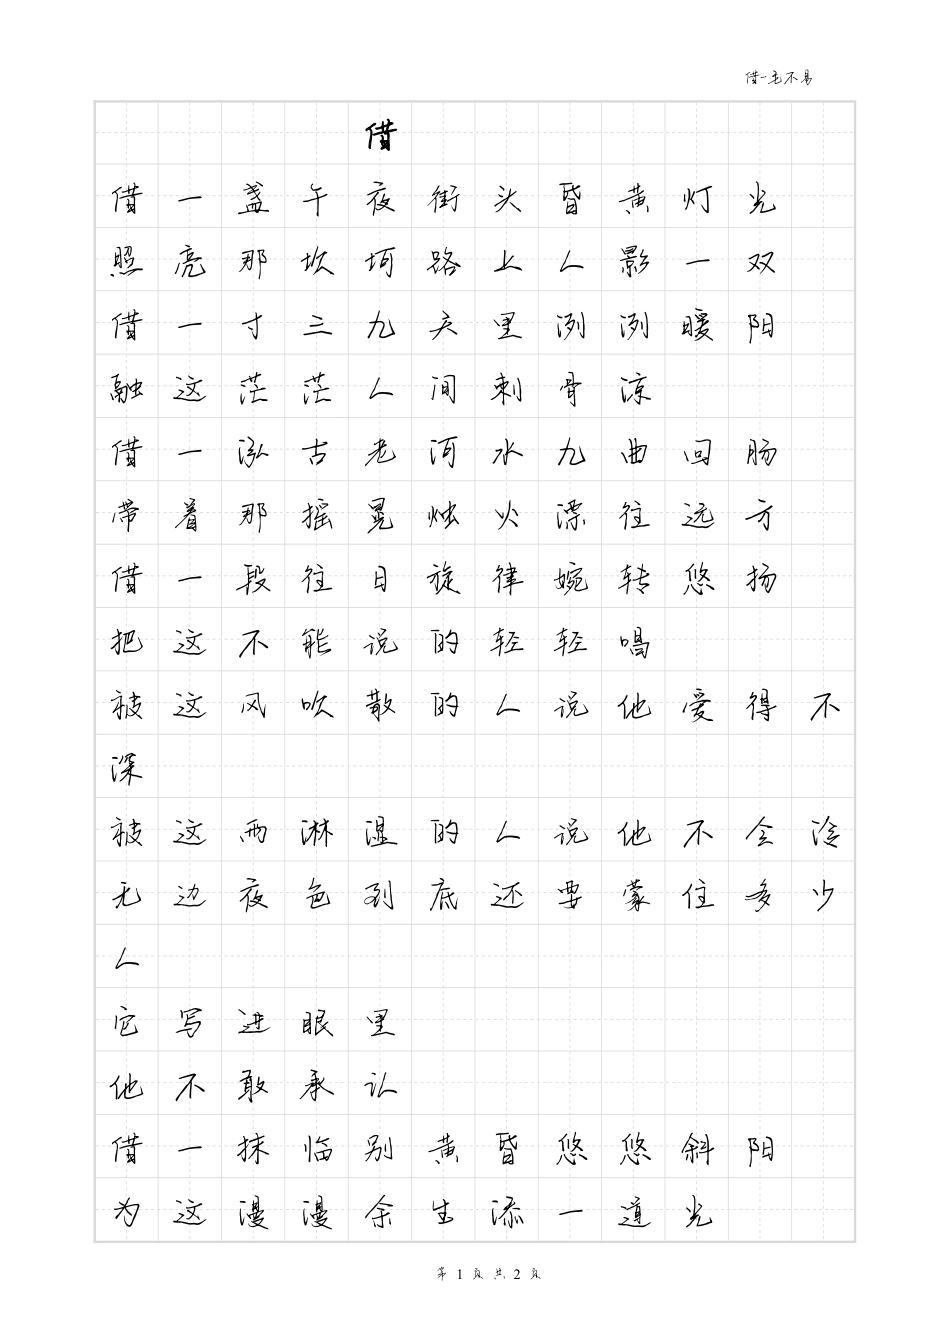 借-毛不易
借
借一盏午夜街头昏黄灯光
照亮那坎坷路上人影一双
借一寸三九天里冽冽暖阳
融这茫茫人间刺骨凉
借一泓古老河水九曲回肠
带着那摇晃烛火漂往远方
借一段往日旋律婉转悠扬
把这不能说的轻轻唱
被这风吹散的人说他爱得不
深
被这雨淋湿的人说他不会冷
无边夜色到底还要蒙住多少
人
它写进眼里
他不敢承认
借一抹临别黄昏悠悠斜阳
为这漫漫余生添一道光
第 1 页 共 2 页